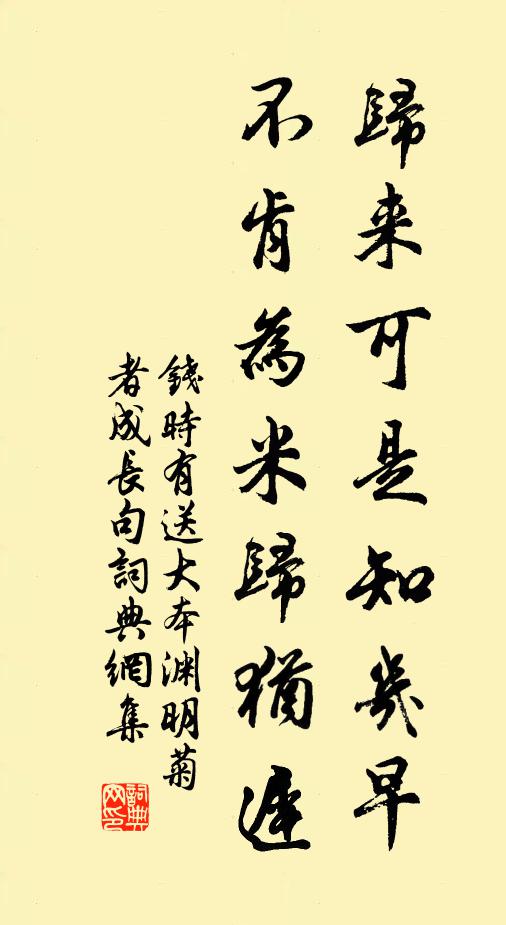 歸来可是知幾早
不肯為米歸猶遲
錢時有送大本淵明菊
者成長句詞典網集
詞典网印